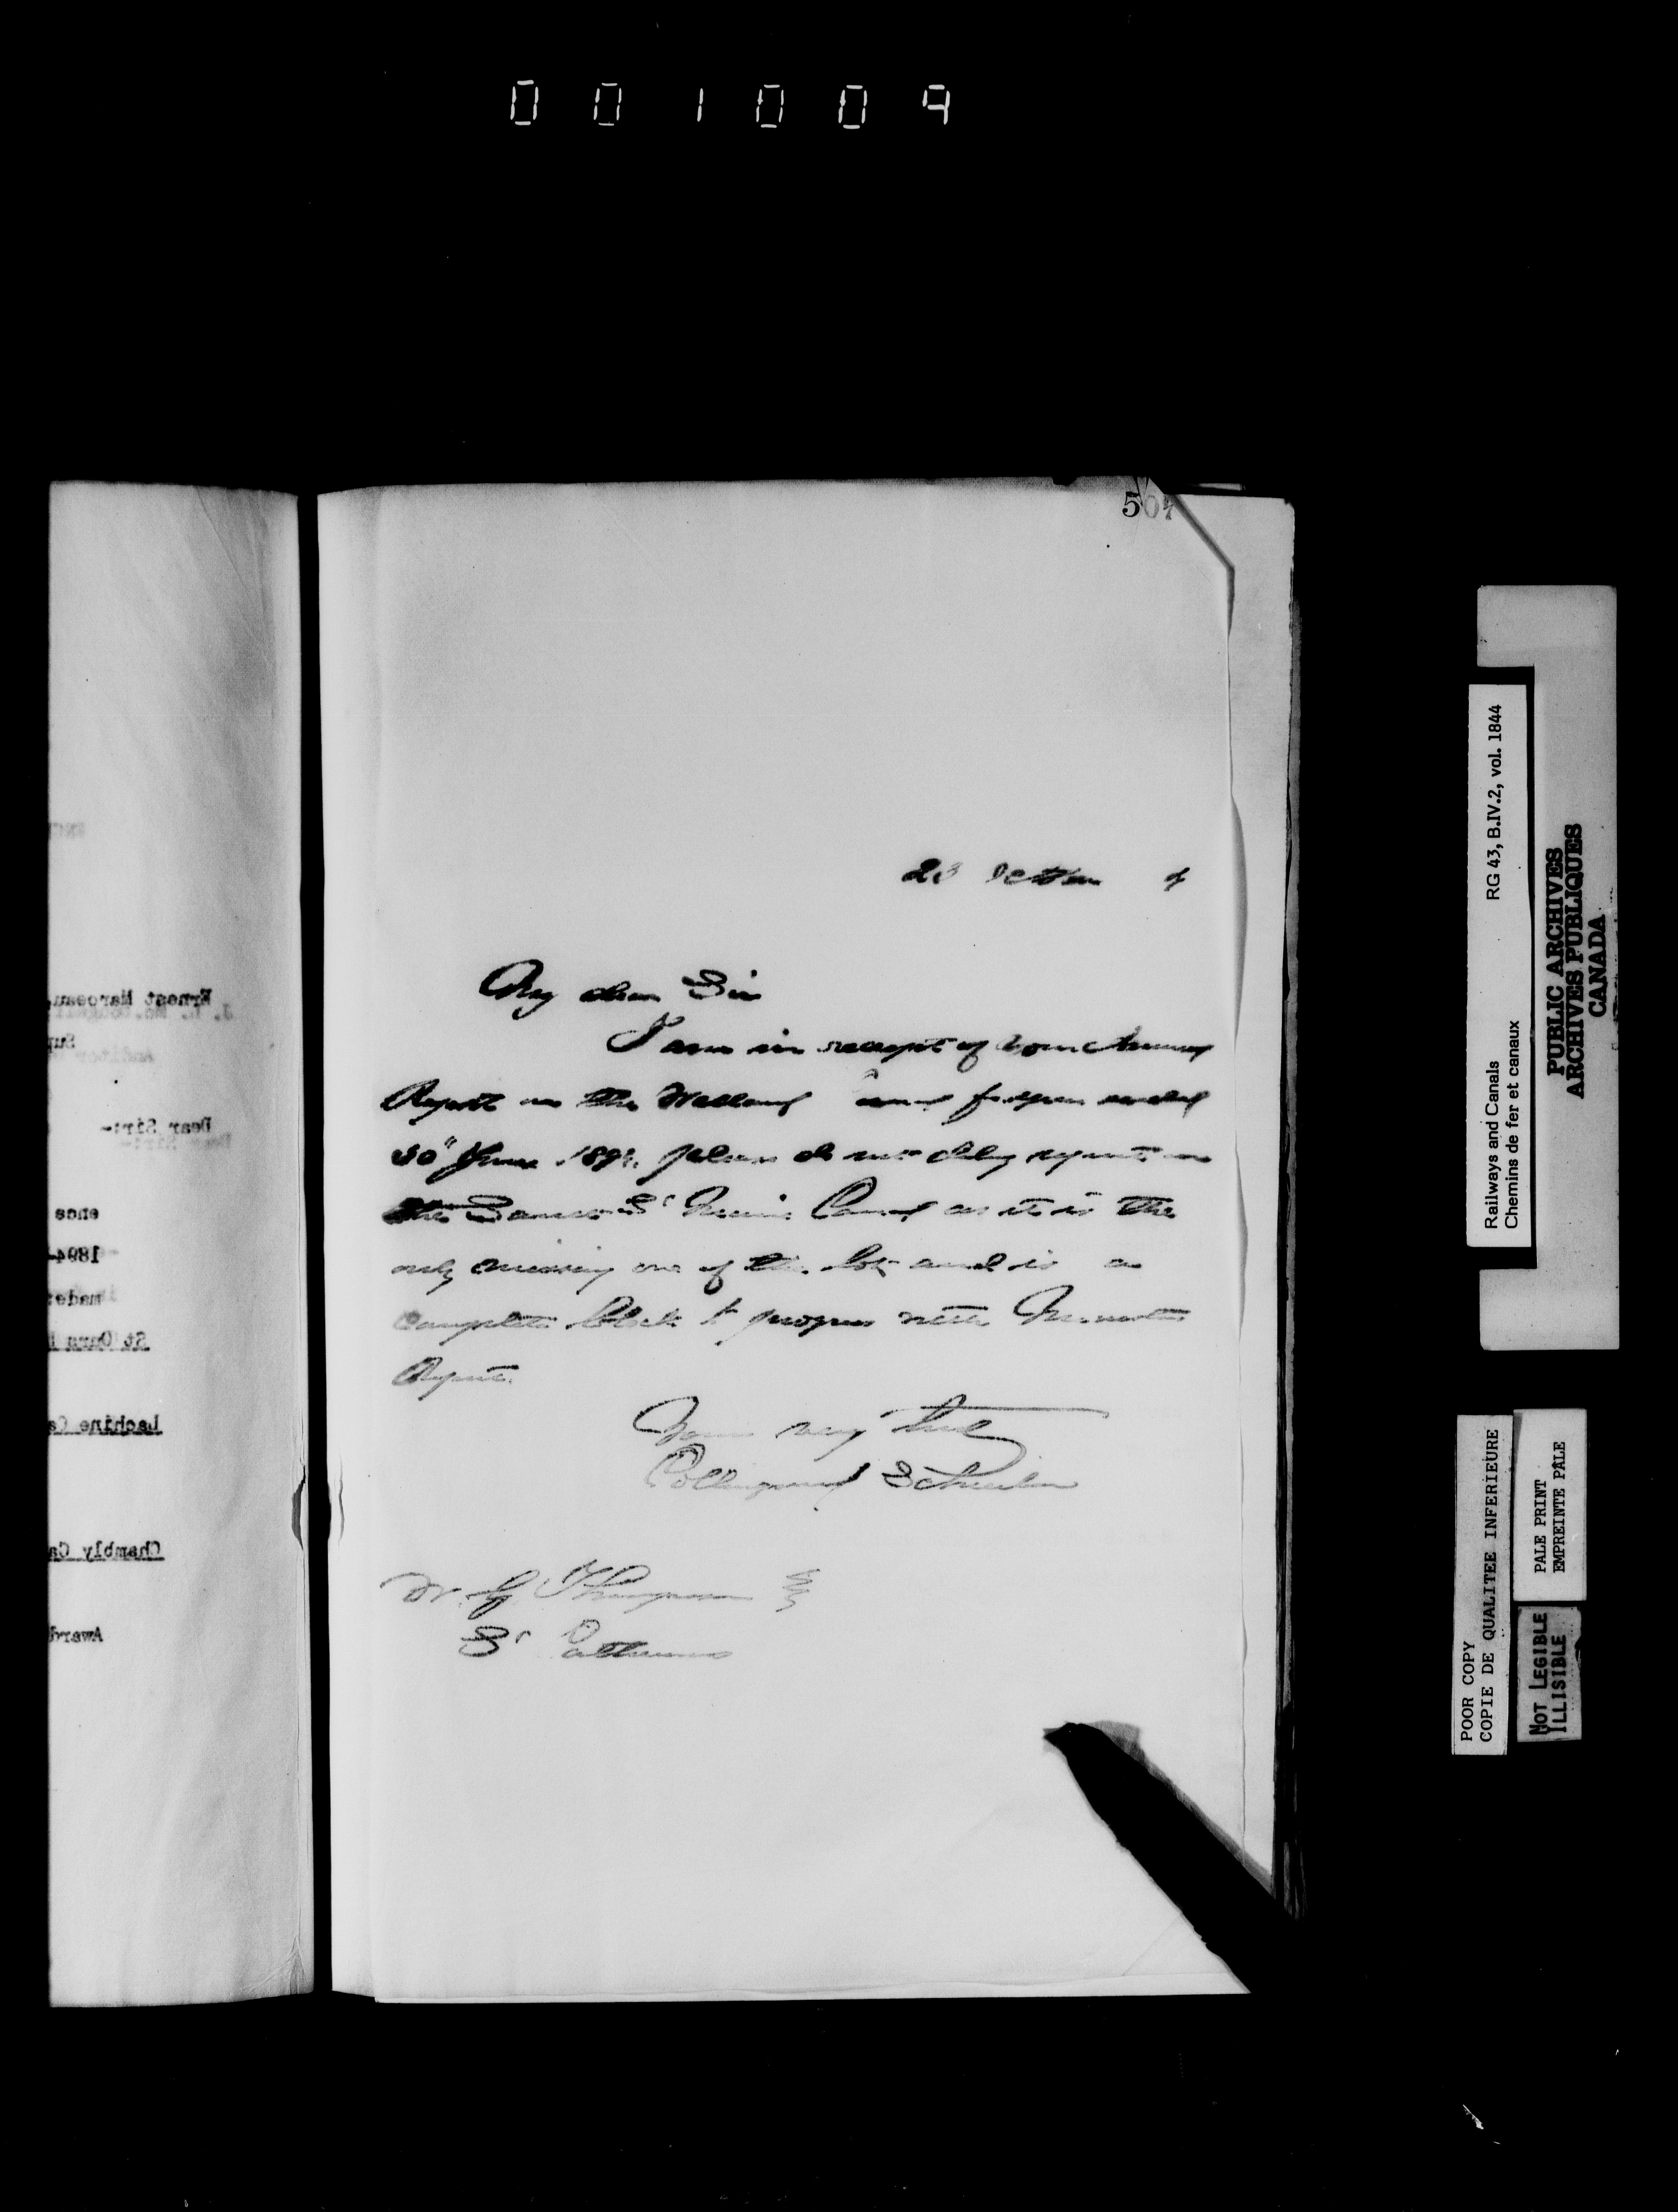 001009
507
23 October 4
My dear Sir
I am in receipt of your Annual
Report on the Welland Canal for year ended
30" June 1894. please do not delay report on
the Sault St Marie Canal as it is the
only missing one of the lot and is a
complete block to progress with Minister's
Report.
Yours very truly
Collingwood Schreiber
W. G. Thompson Esq
St Catharines
Ernest Marceau,
Sup
Auditor
Dear Sir:-
ence
1894
made:
St Ours
Lachine Ca
Chambly Ca
Award
Railways and Canals RG 43, B.IV.2, vol. 1844
Chemins de fer et canaux
PUBLIC ARCHIVES
ARCHIVES PUBLIQUES
CANADA
POOR COPY
COPIE DE QUALITEE INFERIEURE
PALE PRINT
EMPREINTE PALE
NOT LEGIBLE
ILLISIBLE